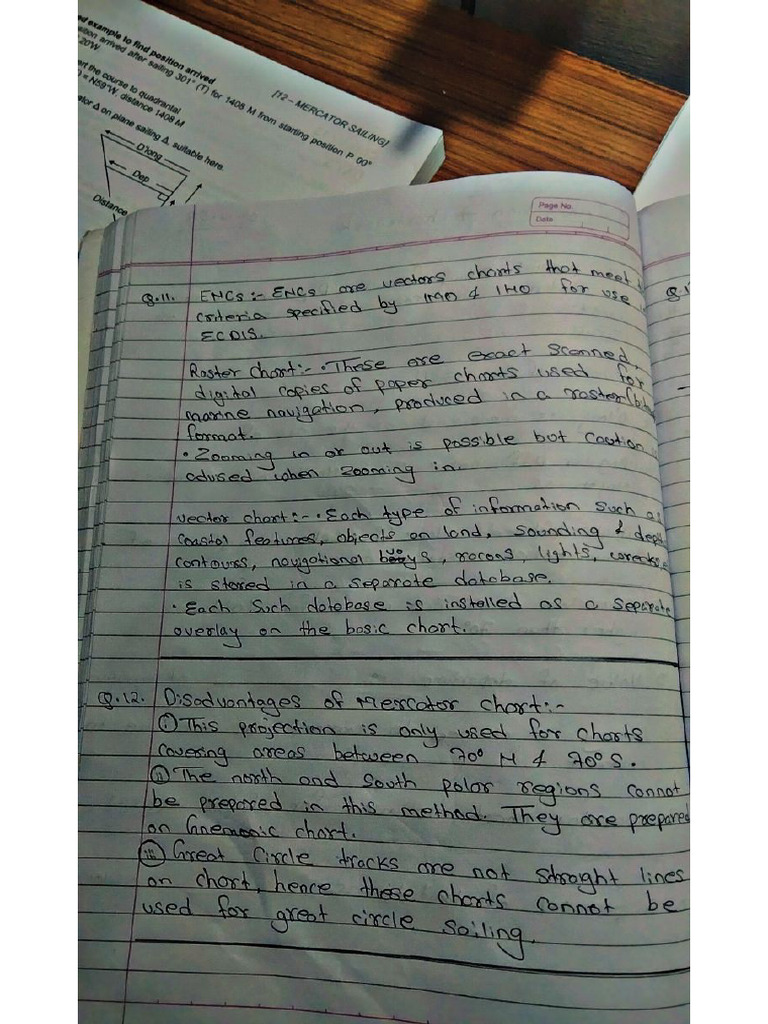 ed example to find position arrived
sition arrived after sailing 301° (T) for 1408 M from starting position P 00°
20'W.
ert the course to quadrantal
) = N59°W, distance 1408 M
ator Δ on plane sailing Δ, suitable here.
[12 – MERCATOR SAILING]
D'long
Dep
Distance
Page No.
Date
Q.11. ENCs:- ENCs are vectors charts that meet
criteria specified by IMO & IHO for use
ECDIS.
Raster chart:- • These are exact scanned,
digital copies of paper charts used for
marine navigation, produced in a raster
format.
• Zooming in or out is possible but caution
advised when zooming in.
vector chart:- • Each type of information such as
coastal features, objects on land, sounding & depth
contours, navigational buoys, racons, lights, wrecks,
is stored in a separate database.
• Each such database is installed as a separate
overlay on the basic chart.
Q.12. Disadvantages of Mercator chart:-
(i) This projection is only used for charts
covering areas between 70° N & 70° S.
(ii) The north and south polar regions cannot
be prepared in this method. They are prepared
on Gnemonic chart.
(iii) Great Circle tracks are not straight lines
on chart, hence these charts cannot be
used for great circle sailing.